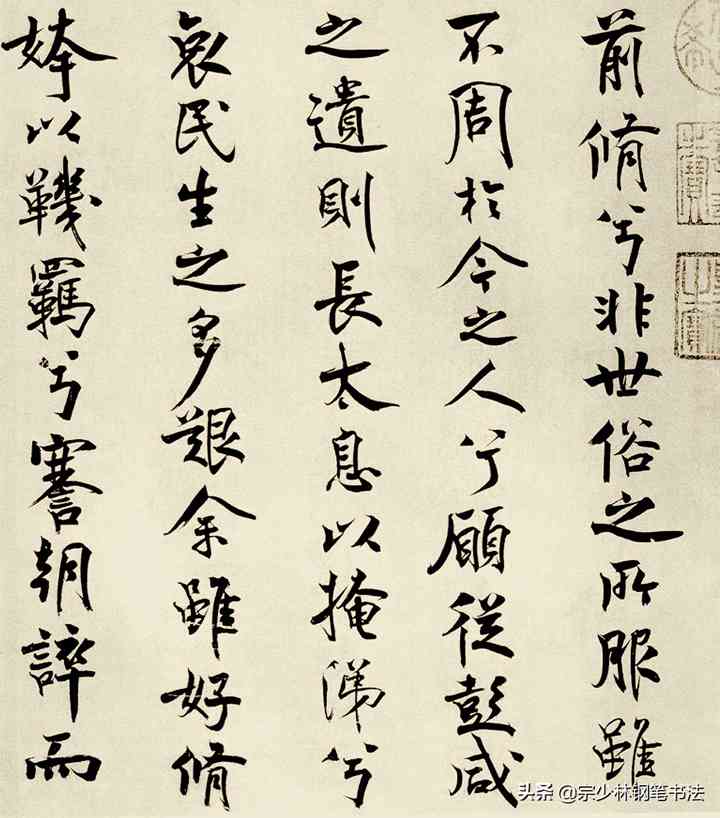 前脩兮非世俗之所服雖
不周於今之人兮願從彭咸
之遺則長太息以掩涕兮
哀民生之多艱余雖好脩
姱以鞿羈兮謇朝誶而
头条 @宗少林钢笔书法